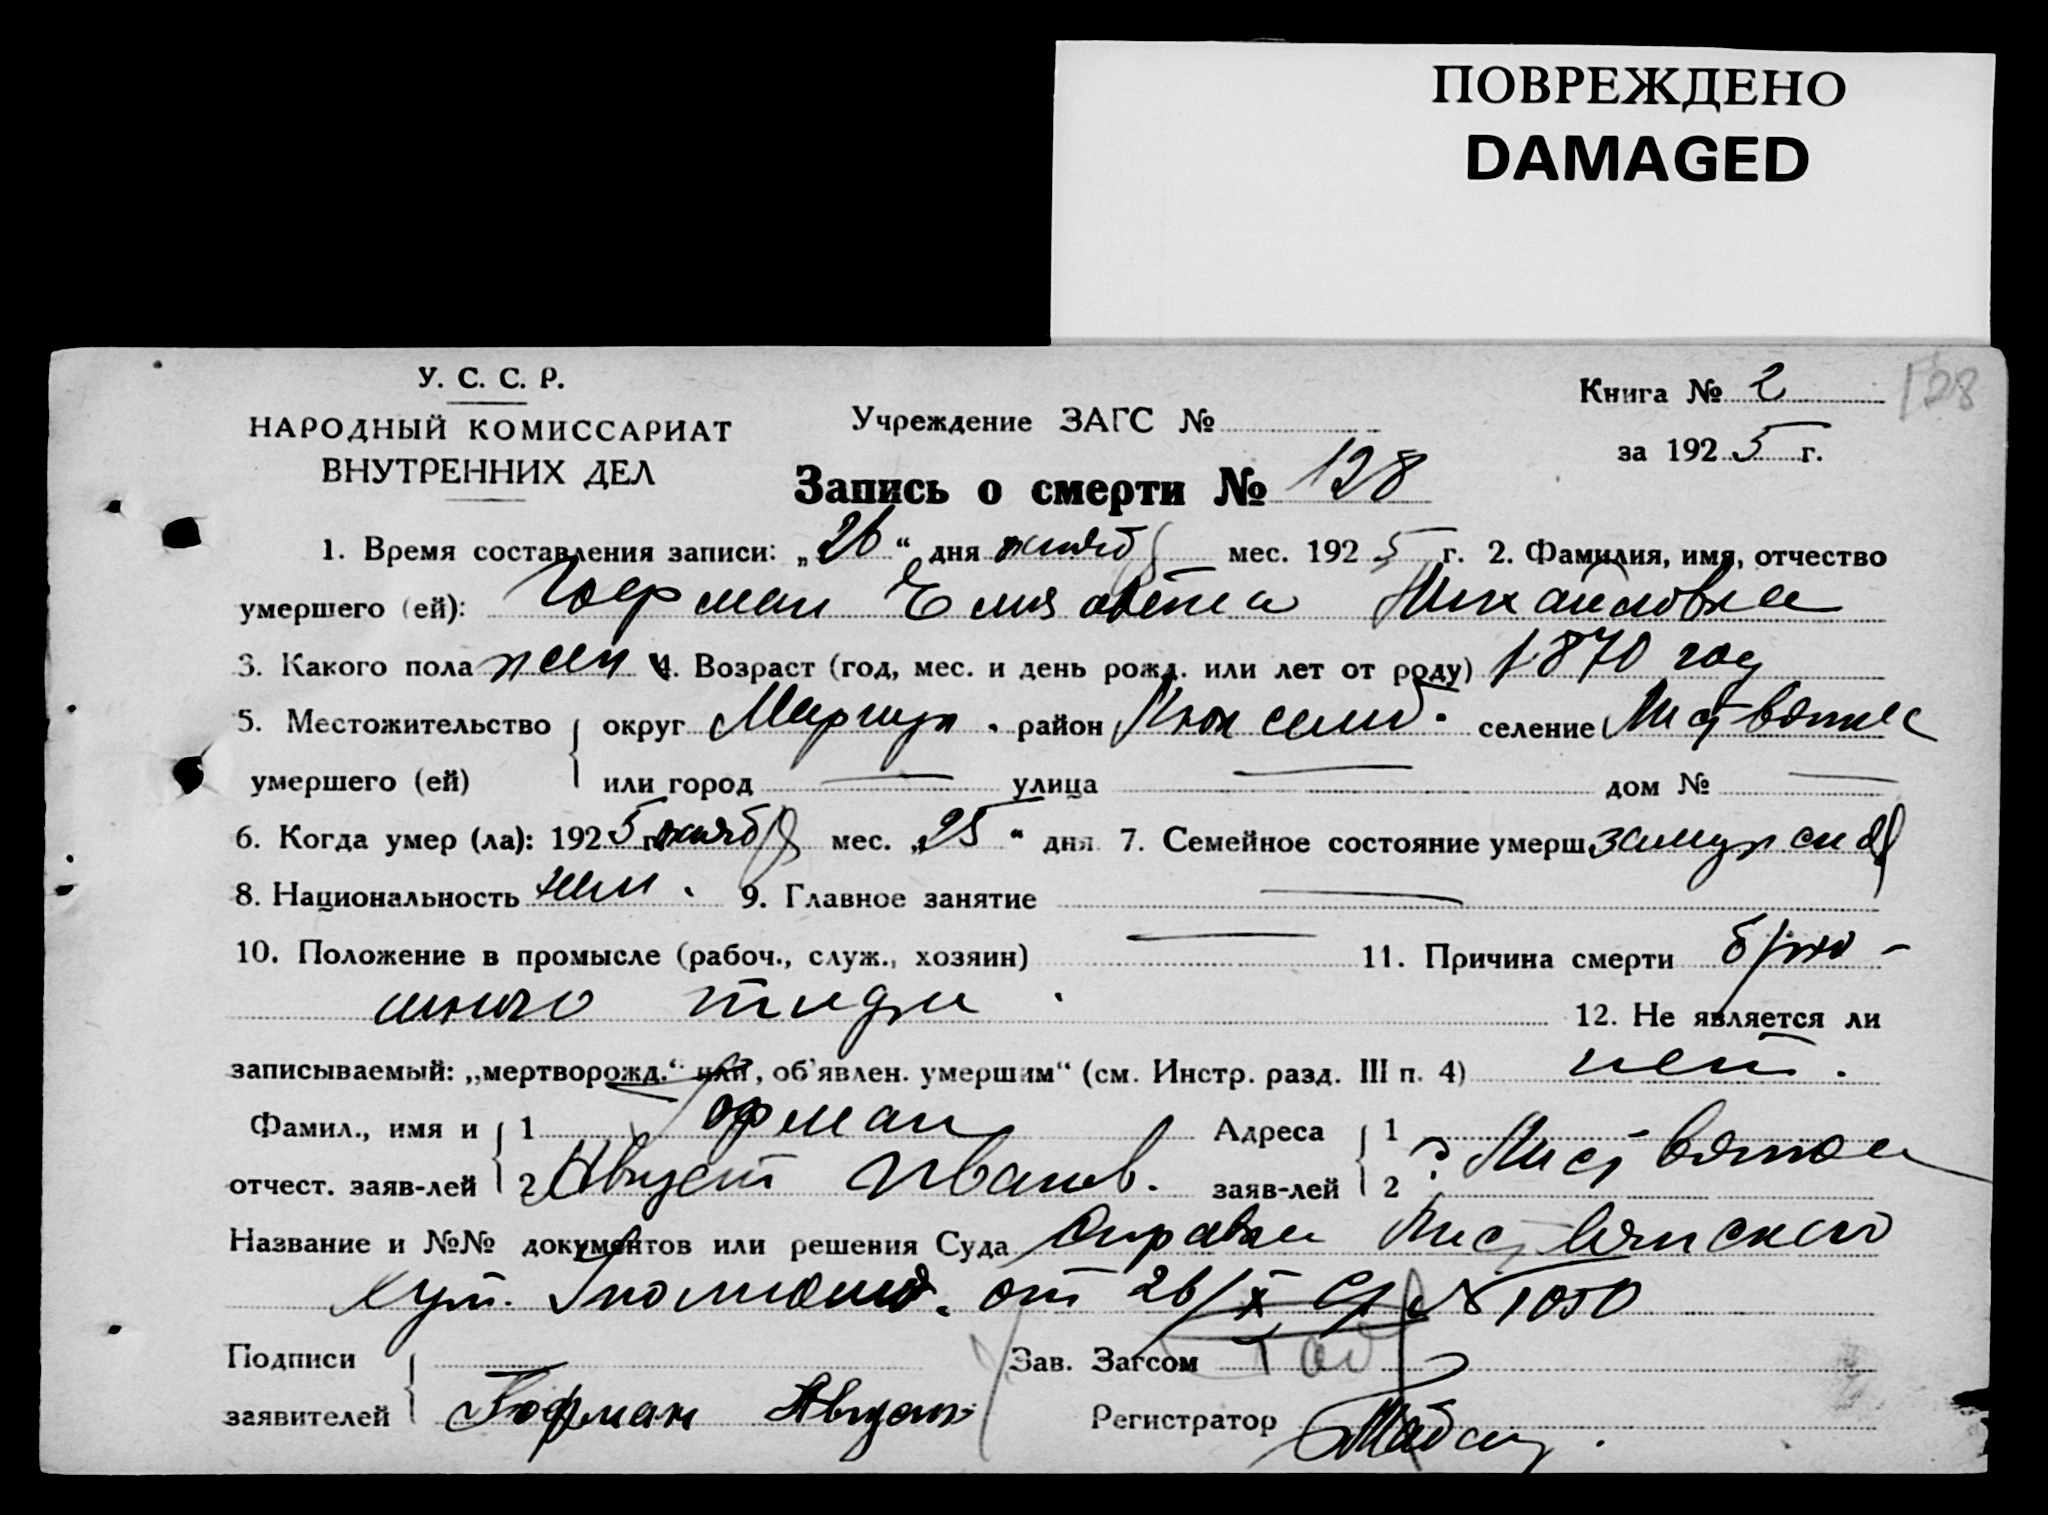 ПОВРЕЖДЕНО
DAMAGED
У. С. С. Р.
НАРОДНЫЙ КОМИССАРИАТ
ВНУТРЕННИХ ДЕЛ
Учреждение ЗАГС №
Книга № 2
128
за 1925 г.
Запись о смерти № 128
1. Время составления записи: „26“ дня октября мес. 1925 г. 2. Фамилия, имя, отчество
умершего (ей): Гофман Елизавета Михайловна
3. Какого пола жен 4. Возраст (год, мес. и день рожд. или лет от роду) 1870 году
5. Местожительство округ Мариуп. район селение
умершего (ей) или город — улица — дом № —
6. Когда умер (ла): 1925 г. октября мес. „25“ дня 7. Семейное состояние умерш. замужем
8. Национальность нем. 9. Главное занятие —
10. Положение в промысле (рабоч., служ., хозяин) — 11. Причина смерти брюш-
ного тифа. 12. Не является ли
записываемый: „мертворожд.“ или „об'явлен. умершим“ (см. Инстр. разд. III п. 4) нет.
Фамил., имя и 1 Гофман Адреса 1
отчест. заяв-лей 2 Август Иванов. заяв-лей 2
Название и №№ документов или решения Суда Справка
от 26/X № 1050
Подписи Зав. Загсом
заявителей Гофман Август Регистратор